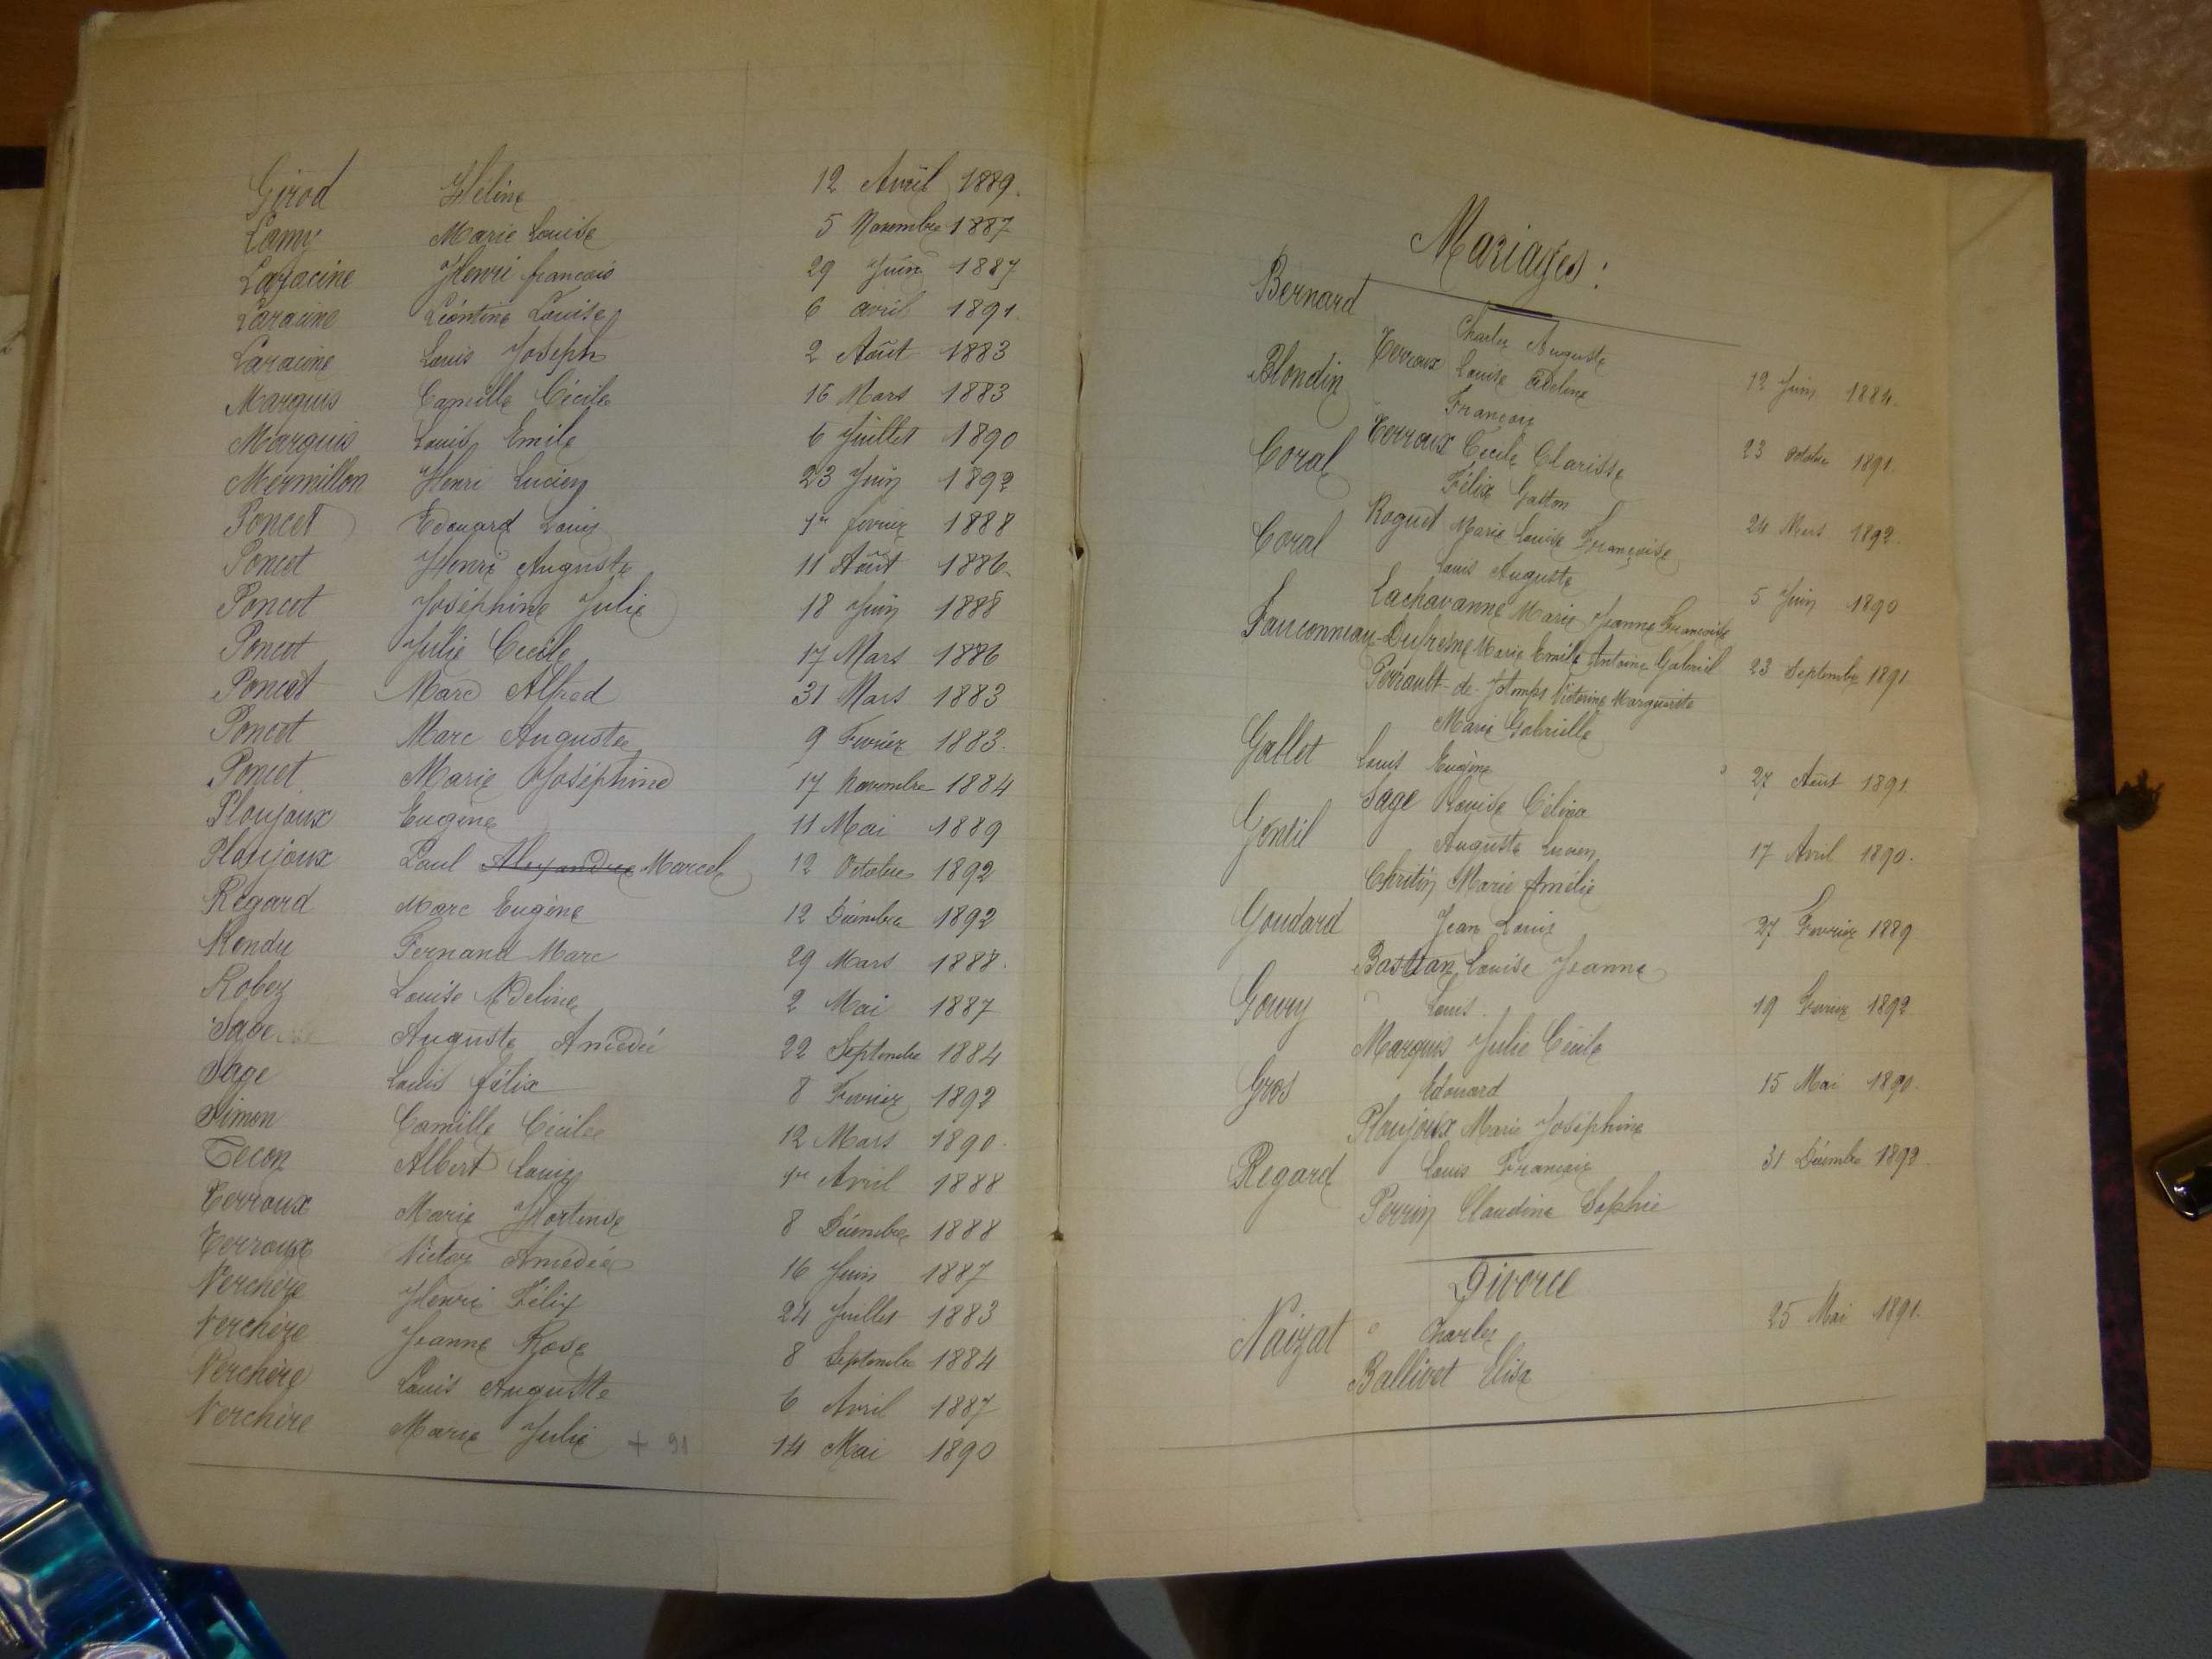 Girod Héline 12 Avril 1889.
Lamy Marie Louise 5 Novembre 1887
Laracine Henri francois 29 Juin 1887
Laracine Léontine Louise 6 avril 1891.
Laracine Louis Joseph 2 Août 1883
Marquis Camille Cécile 16 Mars 1883
Marquis Louis Emile 6 Juillet 1890
Mermillon Henri Lucien 23 Juin 1892
Poncet Edouard Louis 1er fevrier 1888
Poncet Henri Auguste 11 Août 1886.
Poncet Joséphine Julie 18 Juin 1888
Poncet Julie Cécile 17 Mars 1886
Poncet Marc Alfred 31 Mars 1883
Poncet Marc Auguste 9 Fevrier 1883.
Poncet Marie Joséphine 17 Novembre 1884
Ploujoux Eugène 11 Mai 1889
Ploujoux Paul Alexandre Marcel 12 Octobre 1892
Regard Marc Eugène 12 Décembre 1892
Rendu Fernand Marc 29 Mars 1888.
Robez Louise Adeline 2 Mai 1887
Sage Auguste Amédée 22 Septembre 1884
Sage Louis félix 8 Fevrier 1892
Simon Camille Cécile 12 Mars 1890.
Tecon Albert Louis 1er Avril 1888
Terroux Marie Hortense 8 Décembre 1888
Terroux Victor Amédée 16 Juin 1887
Verchère Henri Félix 24 Juillet 1883
Verchère Jeanne Rose 8 Septembre 1884
Verchère Louis Auguste 6 Avril 1887
Verchère Marie Julie + 91 14 Mai 1890
Mariages :
Bernard Charles Auguste
Terroux Louise Adeline 12 Juin 1884.
Blondin François
Terroux Cécile Clarisse 23 octobre 1891.
Coral Félix Gaston
Roguet Marie Louise Françoise 24 Mars 1892.
Coral Louis Auguste
Lachavanne Marie Jeanne Francoise 5 Juin 1890
Fauconneau-Dufresne Marie Emile Antoine Gabriel 23 Septembre 1891
Perrault-de-Jotemps Victorine Marguerite
Marie Gabrielle
Gallet Louis Eugène 27 Août 1891.
Sage Louise Célina
Gentil Auguste Lucien 17 Avril 1890.
Christin Marie Amélie
Goudard Jean Louis 27 Fevrier 1889
Bastian Louise Jeanne
Goury Louis. 19 Fevrier 1892.
Marquis Julie Cécile
Gros Edouard 15 Mai 1890.
Ploujoux Marie Joséphine
Regard Louis Francois 31 Décembre 1892.
Perrin Claudine Sophie
Divorce
Naizat Charles 25 Mai 1891.
Ballivet Elisa